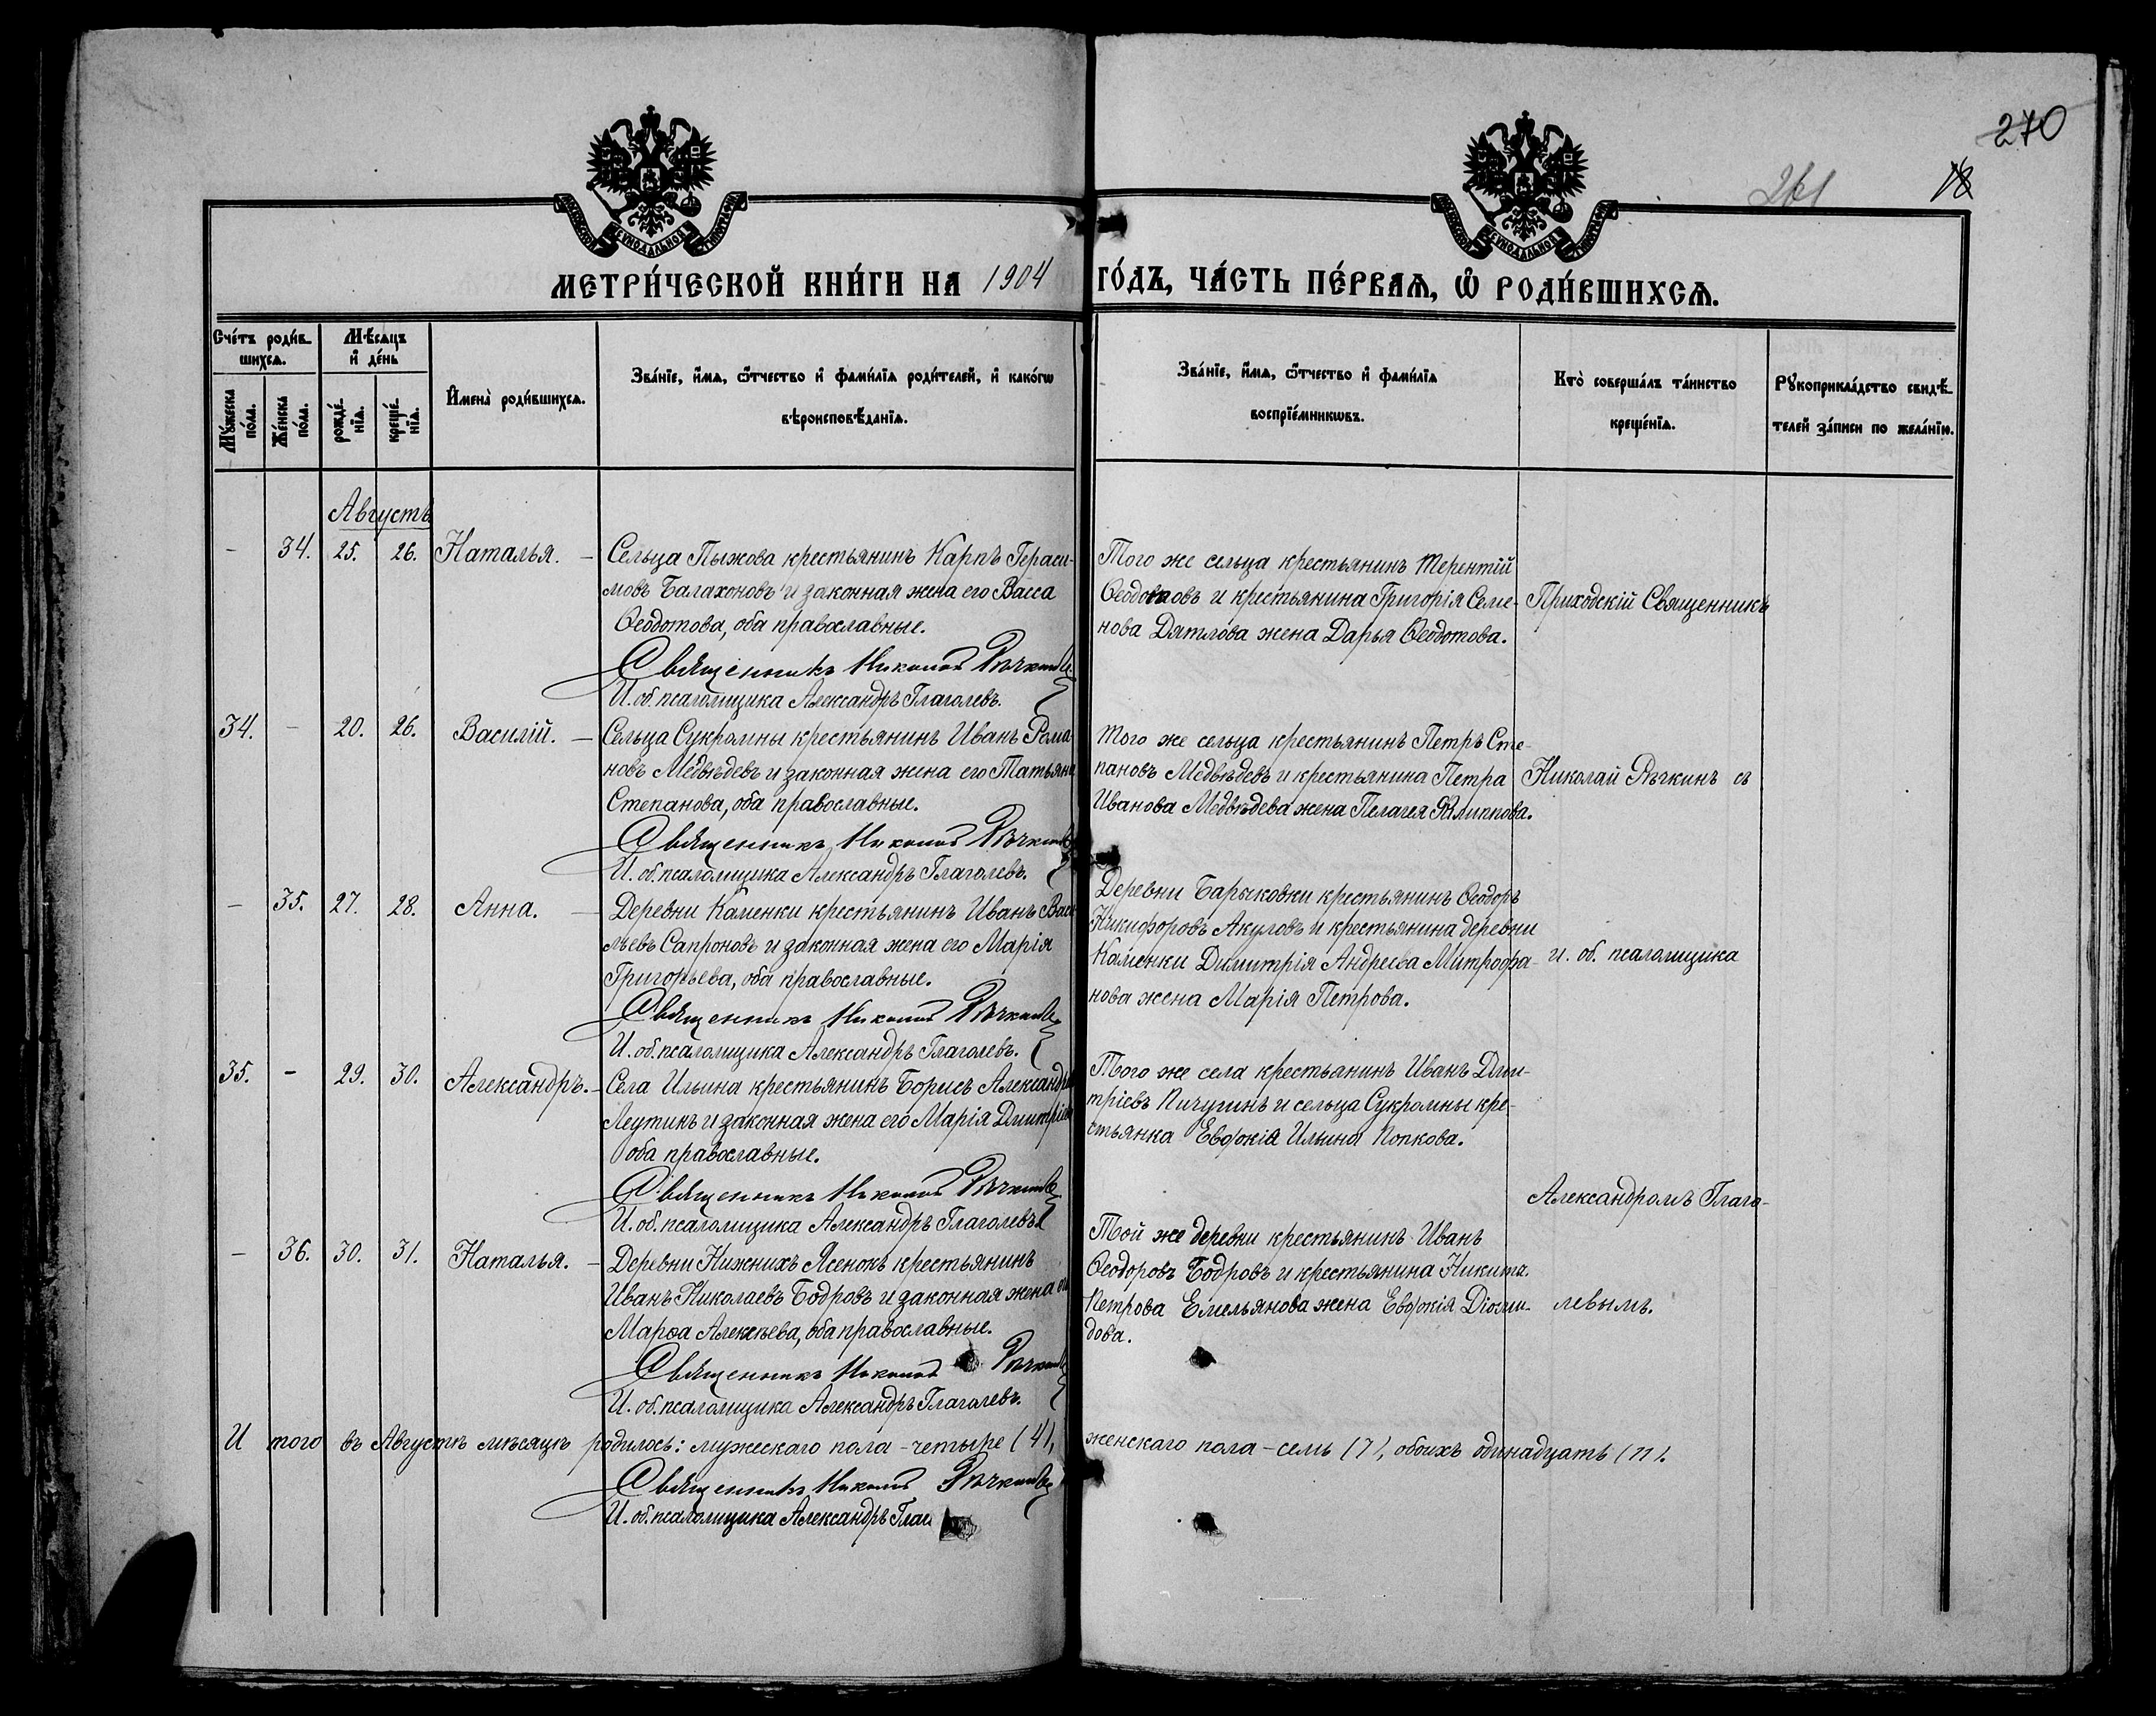 270
261
18
МЕТРИ́ЧЕСКОЙ КНИ́ГИ НА 1904 ГО́ДЪ, ЧА́СТЬ ПЕ́РВАѦ, Ѡ҆ РОДИ́ВШИХСѦ.
Сче́тъ роди́в-
шихсѧ.
Мѣ́сяцъ
и҆ де́нь
Мꙋ́жеска
по́ла.
Же́нска
по́ла.
рожде́-
нїѧ.
креще́-
нїѧ.
И҆мена̀ роди́вшихсѧ.
Зва́нїе, и҆́мѧ, ѻ҆́тчество и҆ фамн́лїѧ роди́телей, и҆ како́гѡ
вѣроисповѣ́данїѧ.
Зва́нїе, и҆́мѧ, ѻ҆́тчество и҆ фами́лїѧ
воспрїе́мникѡвъ.
Кто̀ соверша́лъ та́инство
креще́нїѧ.
Рꙋкоприкла́дство свидѣ́-
телей за́писи по жела́нїю.
Августъ
- 34. 25. 26. Наталья. - Сельца Пыжова крестьянинъ Карпъ Гераси-
мовъ Балахоновъ и законная жена его Васса
Ѳеодотова, оба православные.
Священникъ Николай Рѣчкинъ
И. об. псаломщика Александръ Глаголевъ.
Того же сельца крестьянинъ Терентій
и крестьянина Григорія Семе-
нова Дятлова жена Дарья Ѳеодотова.
Приходскій Священникъ
34. - 20. 26. Василій. - Сельца Сукромны крестьянинъ Иванъ Рома-
новъ Медвѣдевъ и законная жена его Татьяна
Степанова, оба православные.
Священникъ Николай Рѣчкинъ
И. об. псаломщика Александръ Глаголевъ.
Того же сельца крестьянинъ Петръ Сте-
пановъ Медвѣдевъ и крестьянина Петра
Иванова Медвѣдева жена Пелагея Филиппова.
Николай Рѣчкинъ съ
- 35. 27. 28. Анна. - Деревни Каменки крестьянинъ Иванъ Васи-
льевъ Сапроновъ и законная жена его Марія
Григорьева, оба православные.
Священникъ Николай Рѣчкинъ
И. об. псаломщика Александръ Глаголевъ.
Деревни Барыковки крестьянинъ Ѳеодоръ
Никифоровъ Акуловъ и крестьянина деревни
Каменки Димитрія Андреева Митрофа-
нова жена Марія Петрова.
и. об. псаломщика
35. - 29. 30. Александръ. - Села Ильина крестьянинъ Борисъ Александр
Леутинъ и законная жена его Марія Дмитріева
оба православные.
Священникъ Николай Рѣчкинъ
И. об. псаломщика Александръ Глаголевъ
Того же села крестьянинъ Иванъ Дми-
тріевъ Пичугинъ и сельца Сукромны кре-
стьянка Евфокія Ильина Попкова.
Александромъ Глаго-
- 36. 30. 31. Наталья. - Деревни Нижнихъ Ясенокъ крестьянинъ
Иванъ Николаевъ Бодровъ и законная жена его
Марѳа Алексѣева, оба православные.
Священникъ Николай Рѣчкинъ
И. об. псаломщика Александръ Глаголевъ.
Той же деревни крестьянинъ Иванъ
Ѳеодоровъ Бодровъ и крестьянина Никиты
Петрова Емельянова жена Евфокія Діоми-
дова.
левымъ.
И того въ Августѣ мѣсяцѣ родилось: мужескаго пола - четыре (4), женскаго пола - семь (7), обоихъ одинадцать (11).
Священникъ Николай Рѣчкинъ
И. об. псаломщика Александръ Глаг